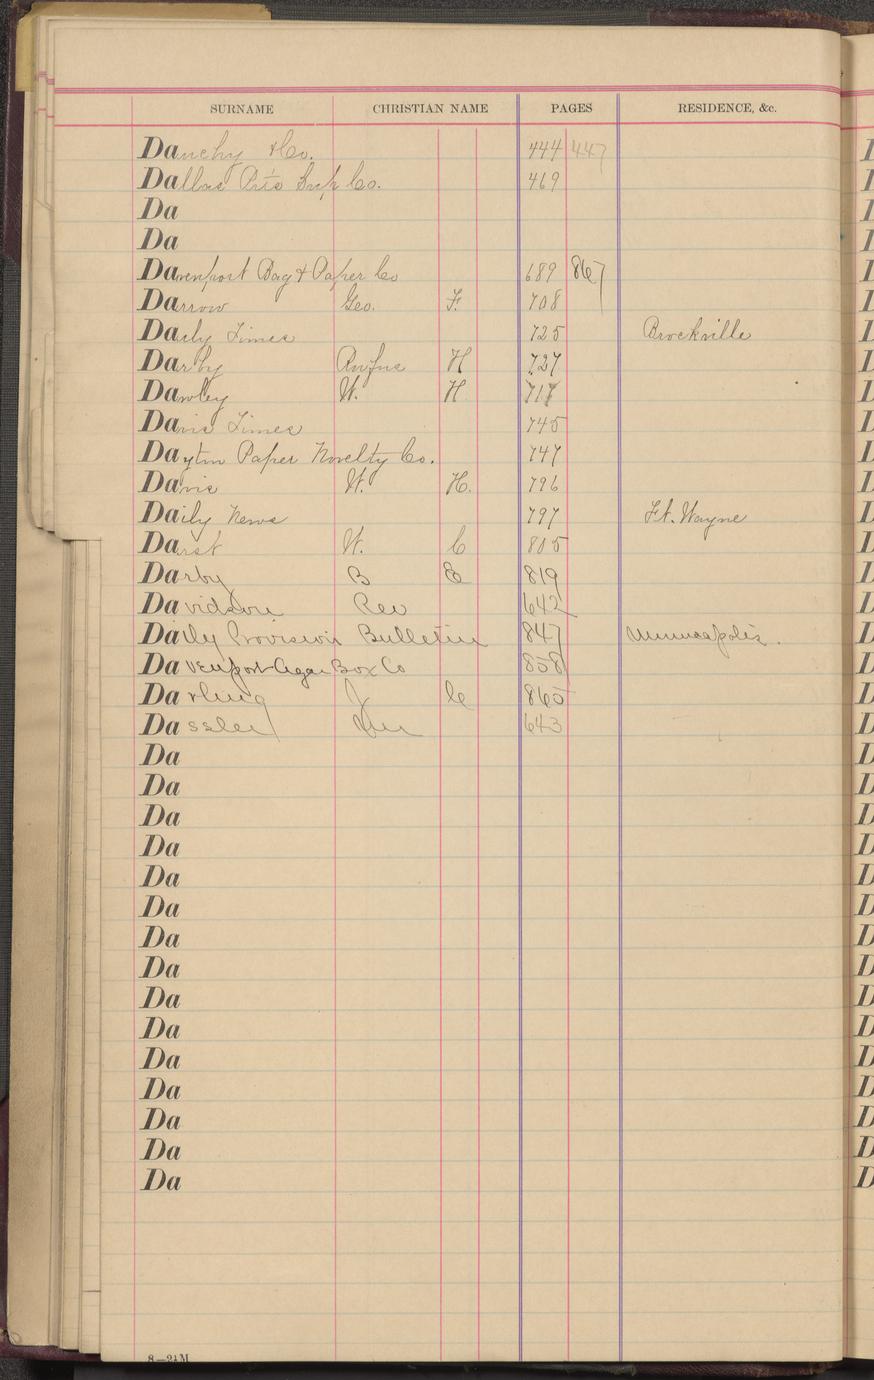 SURNAME CHRISTIAN NAME PAGES RESIDENCE, &c.
Dauchy & Co. 444 447
Dallas Prt'g Sup Co. 469
Da
Da
Davenport Bag & Paper Co 689 867
Darrow Geo. F. 708
Daily Times 725 Brockville
Darby Rufus H 727
Dawley W. H 717
Davis Times 745
Dayton Paper Novelty Co. 747
Davis W. H. 796
Daily News 797 Ft. Wayne
Darst W. C 805
Darby B E 819
Davidson Rev 642
Daily Provision Bulletin 847 Minneapolis.
Davenport Cigar Box Co 858
Darling J C 865
Dassler Wm 643
Da
Da
Da
Da
Da
Da
Da
Da
Da
Da
Da
Da
Da
Da
Da